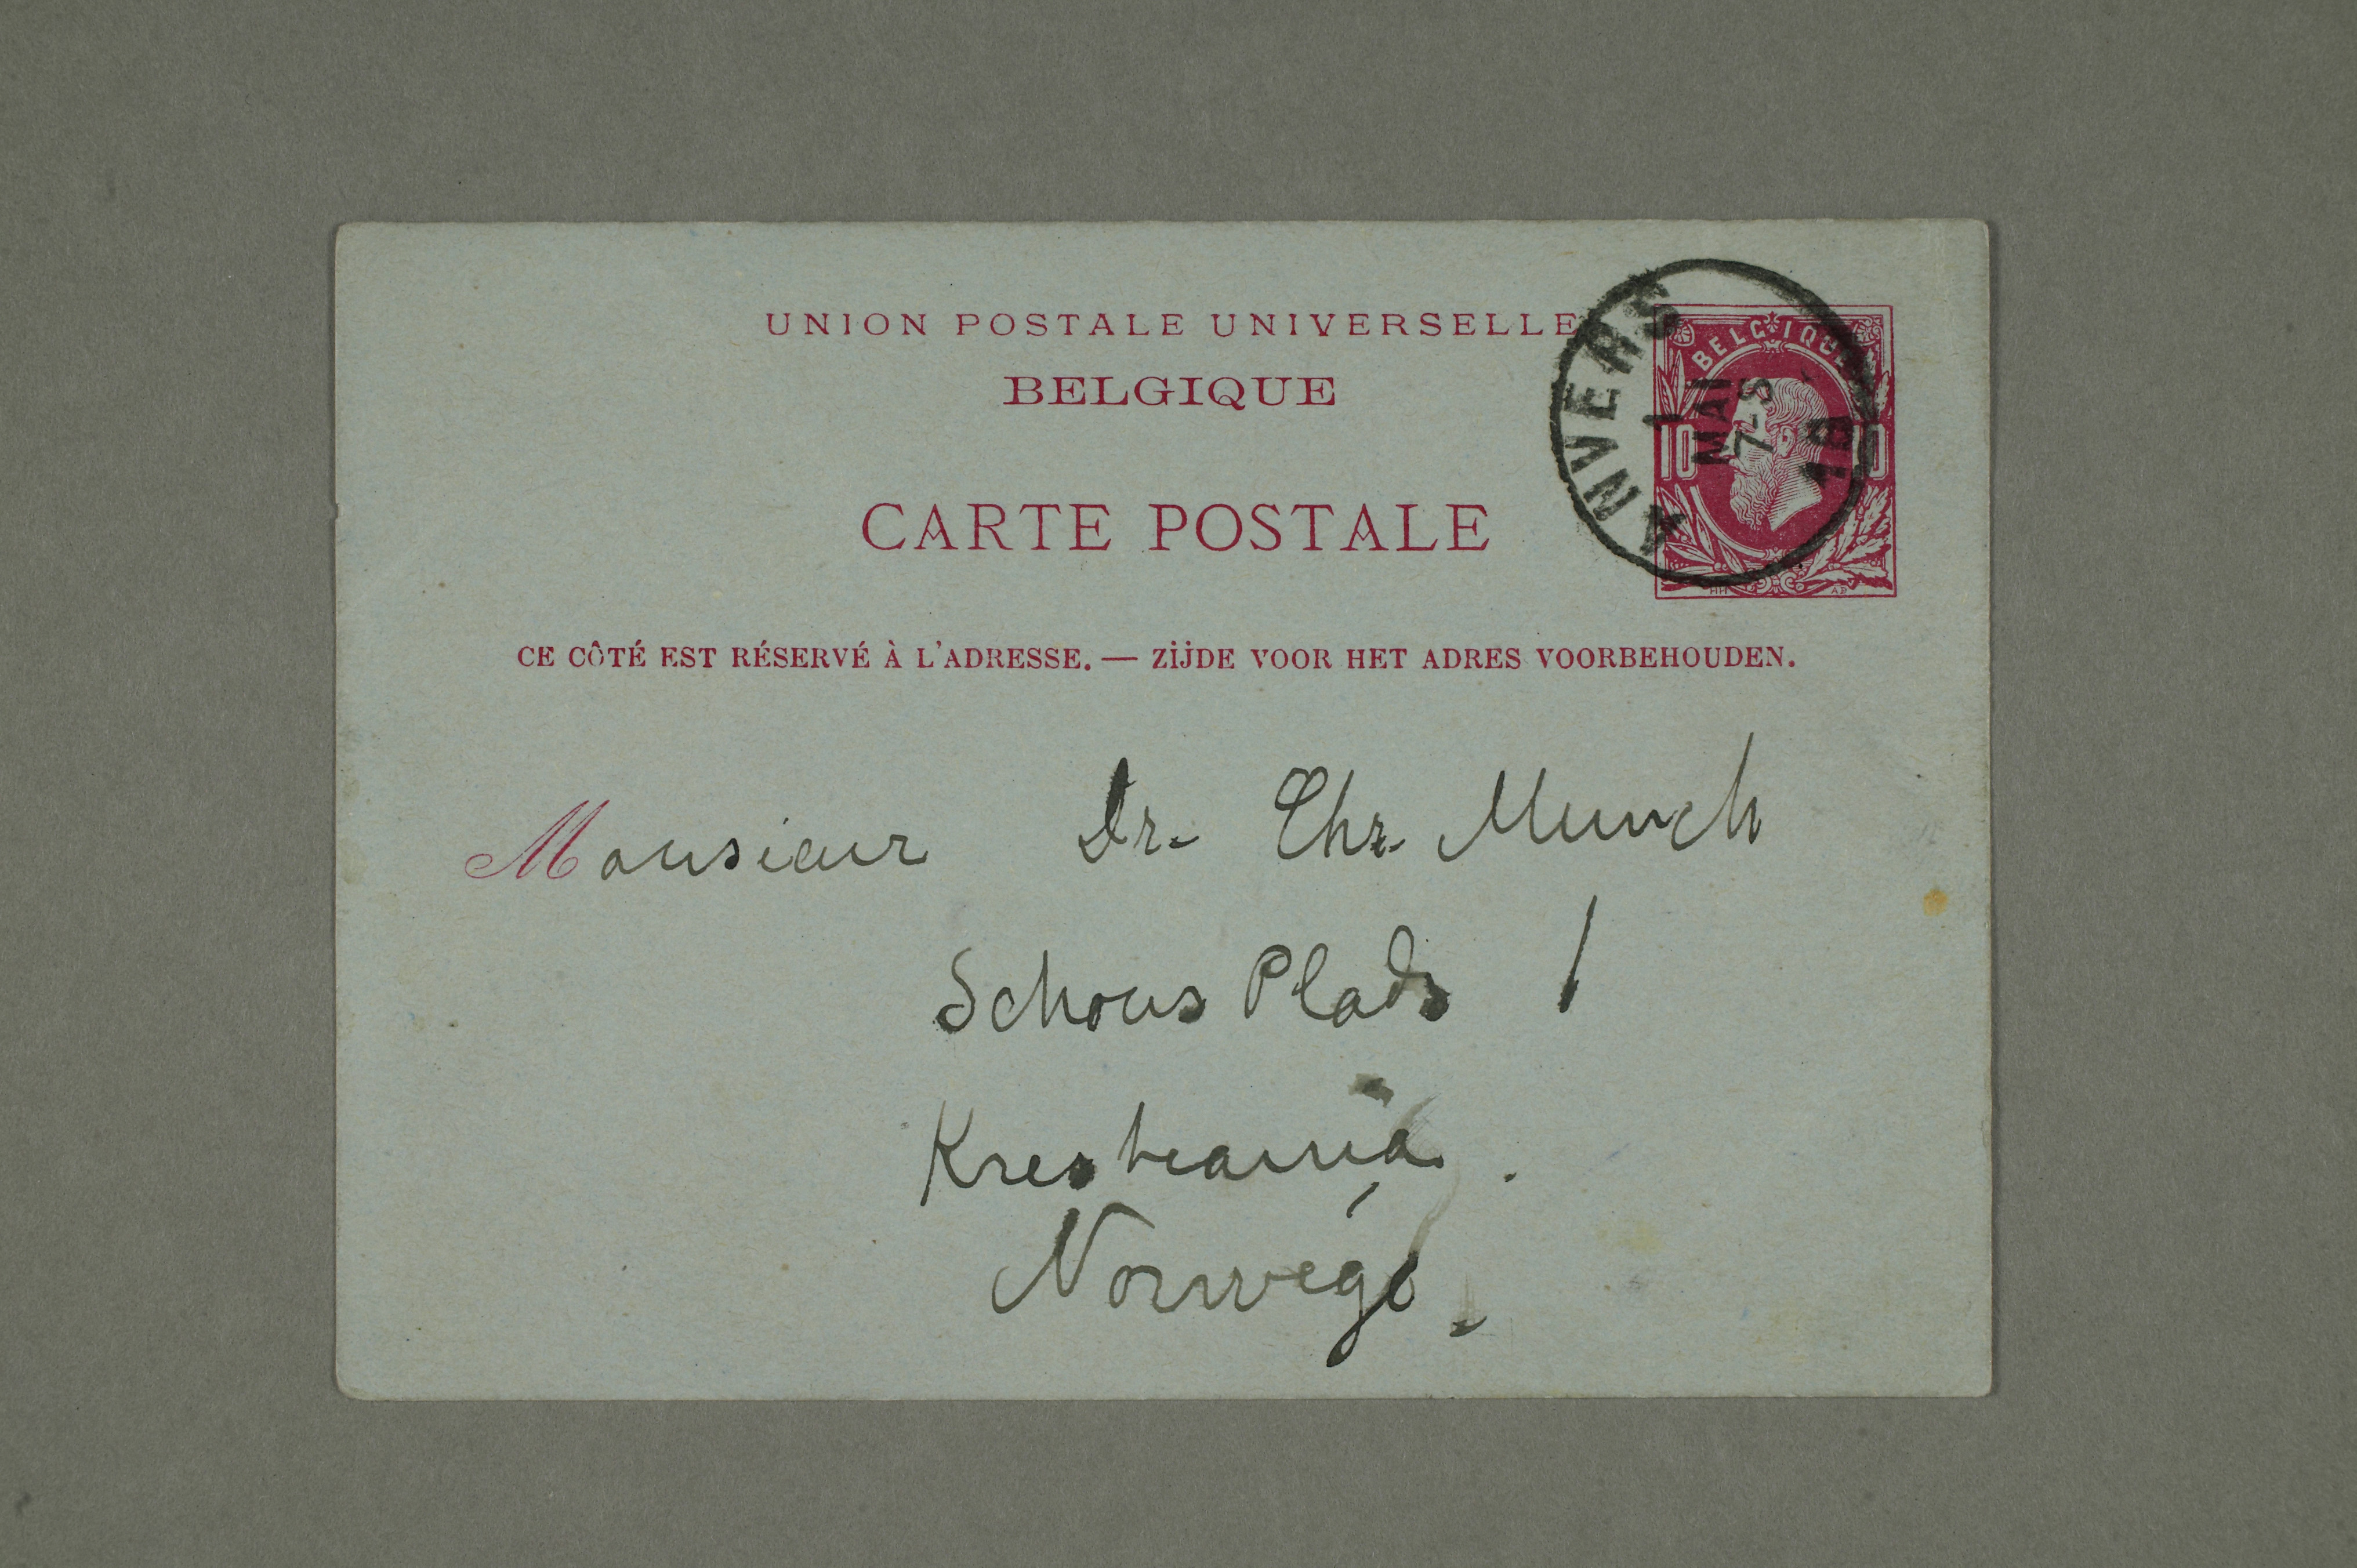 UNION POSTALE UNIVERSELLE
BELGIQUE
CARTE POSTALE
ANVERS
1
MAI
7-S
18
BELGIQUE
10
CE CÔTÉ EST RÉSERVÉ À L'ADRESSE. — ZIJDE VOOR HET ADRES VOORBEHOUDEN.
Monsieur Dr. Chr. Munch
Schous Plads 1
Kristiania.
Norwége